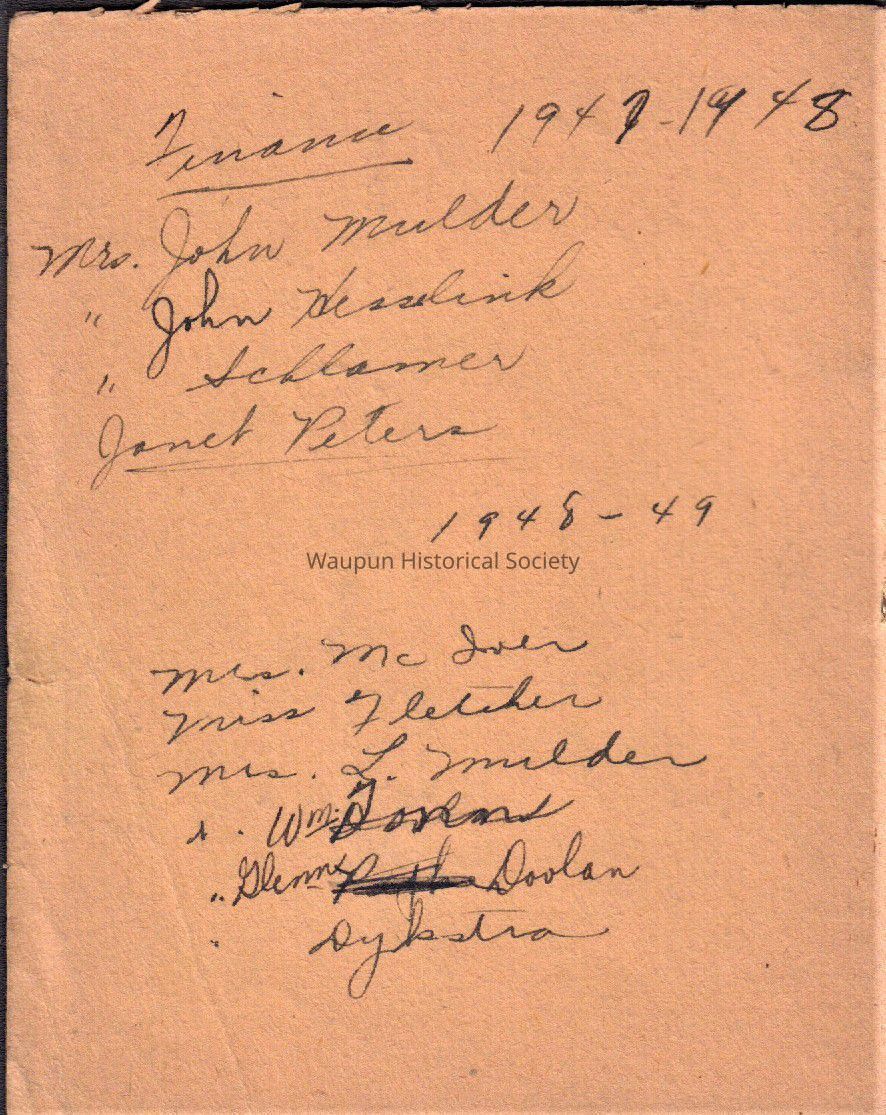 Finance 1947-1948
Mrs. John Mulder
" John Hesselink
" Schlamer
Janet Peters
1948-49
Waupun Historical Society
Mrs. Mc Iver
Miss Fletcher
Mrs. L. Mulder
" . Wm.
" Glenn Doolan
" Dykstra